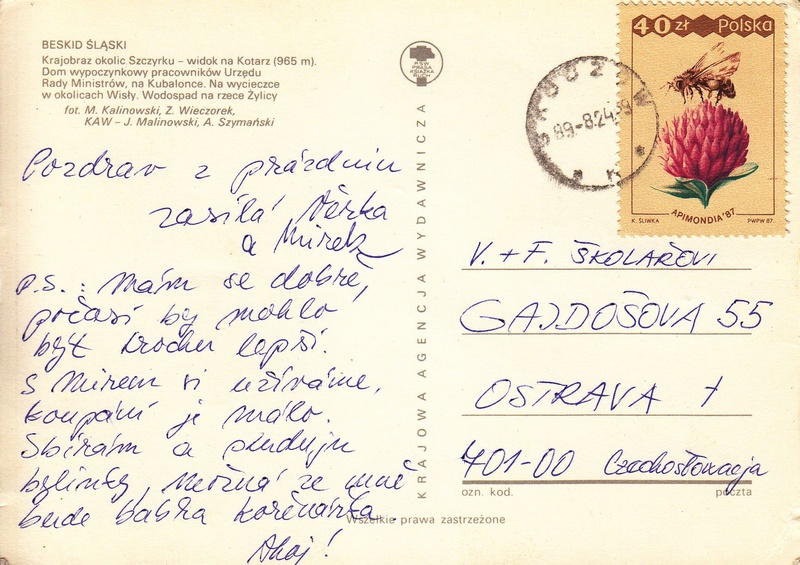 BESKID ŚLĄSKI
Krajobraz okolic Szczyrku – widok na Kotarz (965 m).
Dom wypoczynkowy pracowników Urzędu
Rady Ministrów, na Kubalonce. Na wycieczce
w okolicach Wisły. Wodospad na rzece Żylicy
fot. M. Kalinowski, Z. Wieczorek,
KAW – J. Malinowski, A. Szymański
RSW
PRASA
KSIĄŻKA
RUCH
KRAJOWA AGENCJA WYDAWNICZA
40 zł Polska
K. ŚLIWKA
APIMONDIA'87
PWPW 87.
89-8.24
Pozdrav z prázdnin
zasílá Věrka
a Mirek
P.S.: Mám se dobře,
počasí by mohlo
být trochu lepší.
S Mirem si užíváme,
koupání je málo.
Sbírám a studuju
bylinky, možná ze mně
bude babka kořenářka.
Ahoj!
V. + F. ŠKOLAŘOVI
GAJDOŠOVA 55
OSTRAVA 1
701-00 Czechosłowacja
ozn. kod. poczta
Wszelkie prawa zastrzeżone